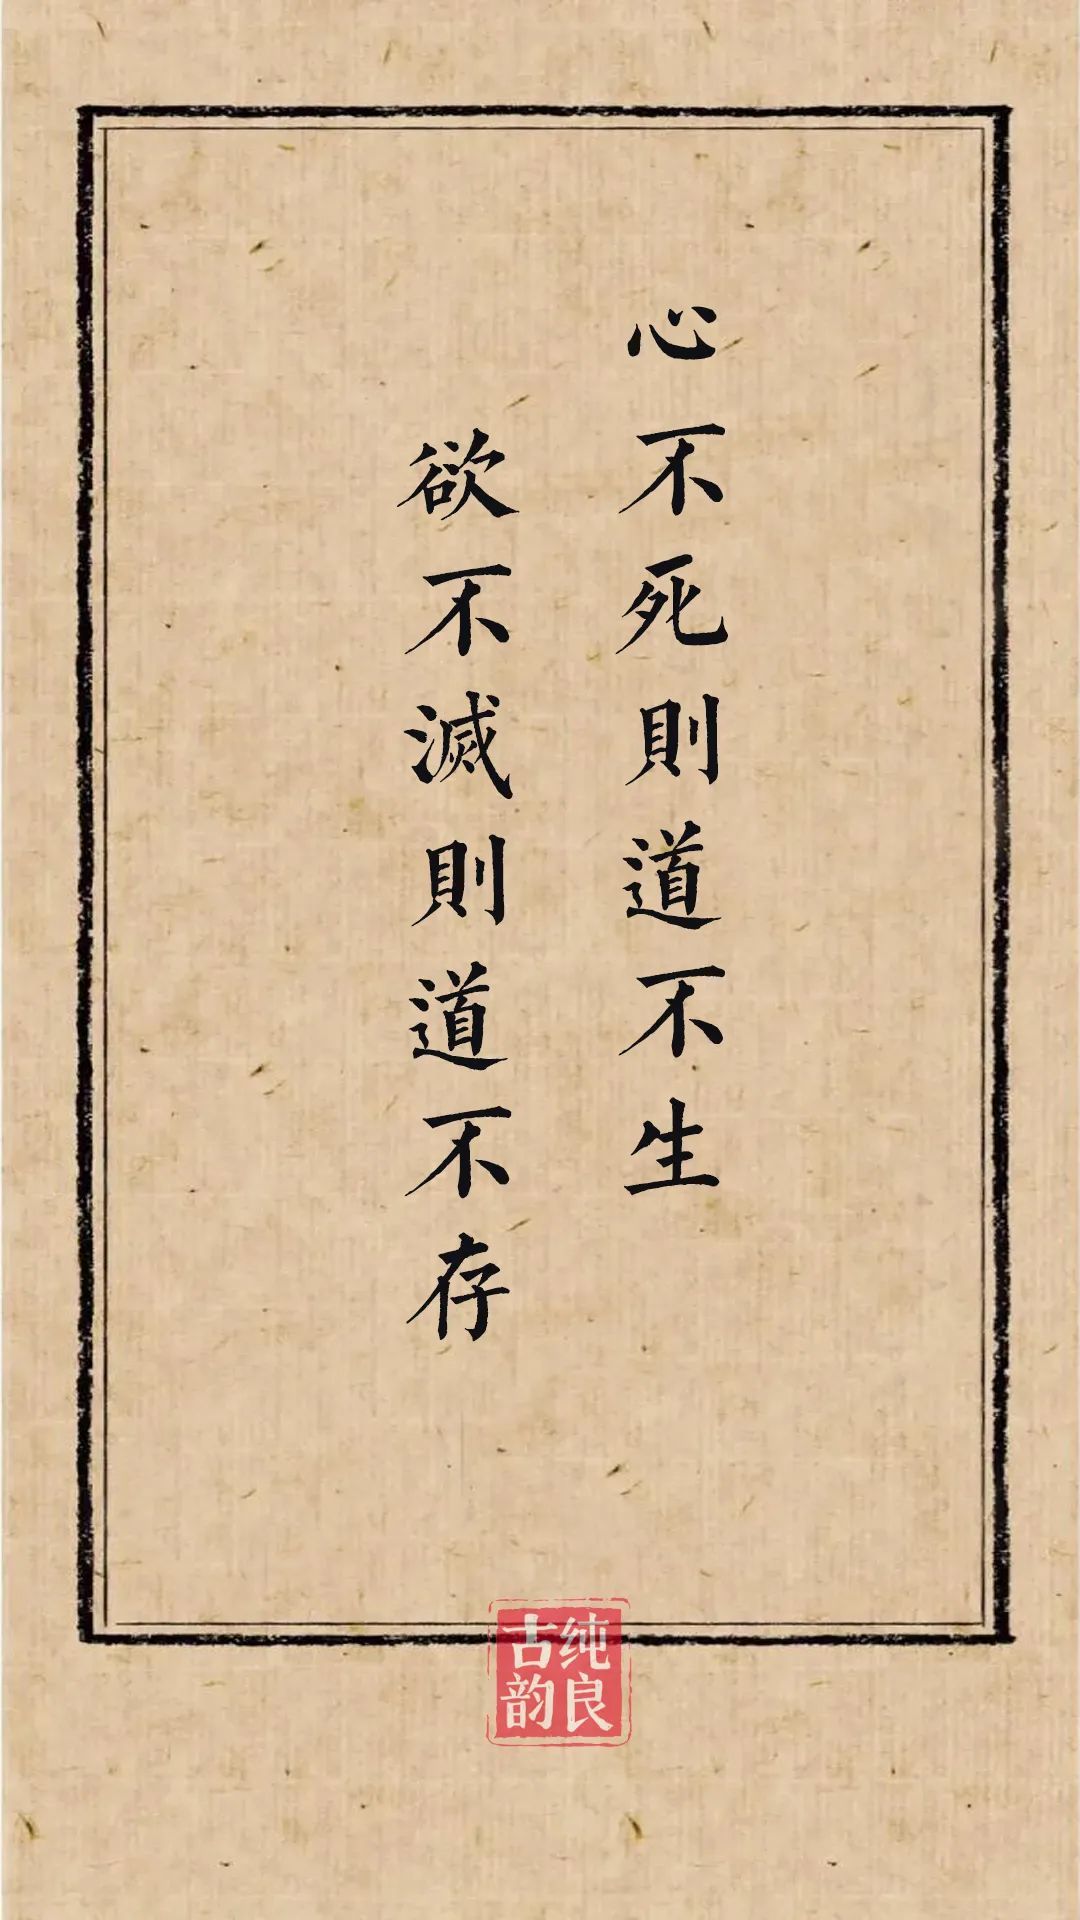 心不死則道不生
欲不滅則道不存
纯良
古韵